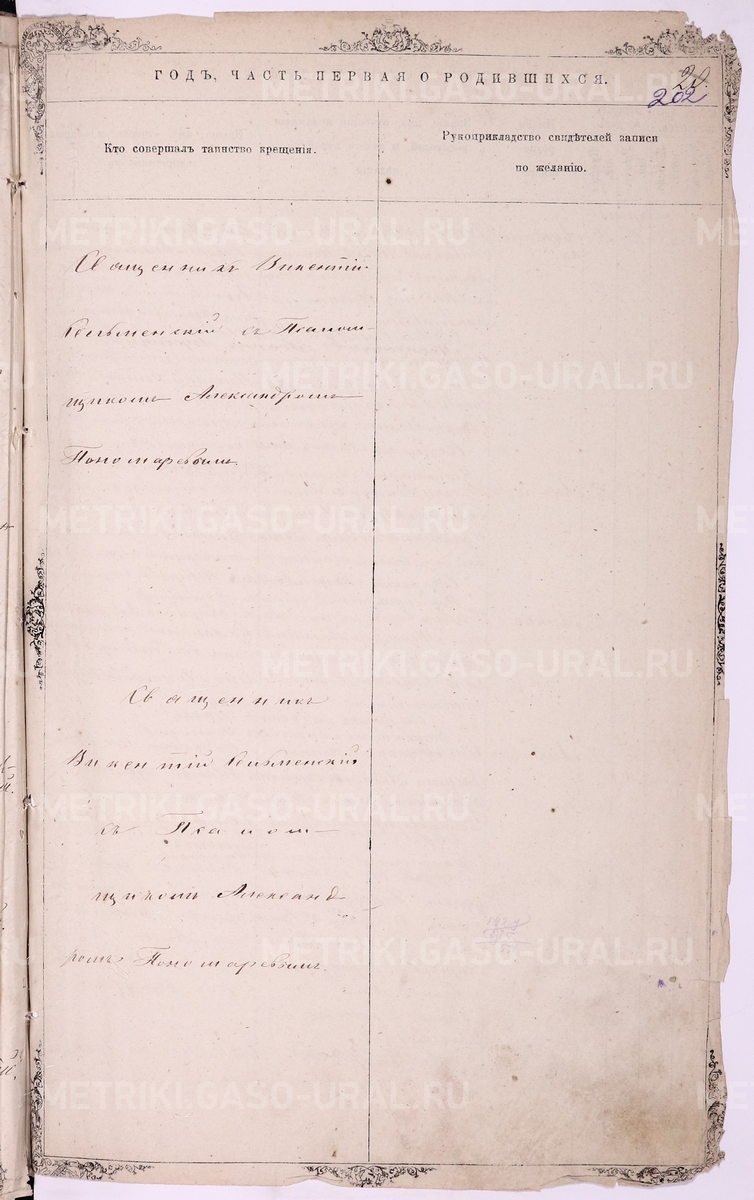 ГОДЪ, ЧАСТЬ ПЕРВАЯ О РОДИВШИХСЯ.
20.
202
Кто совершалъ таинство крещенія.
Рукоприкладство свидѣтелей записи
по желанію.
Священникъ Викентій
съ Псалом-
щикомъ Александромъ
Пономаревымъ.
Священникъ
Викентій
съ Псалом-
щикомъ Александ-
ромъ Пономаревымъ.
METRIKI.GASO-URAL.RU